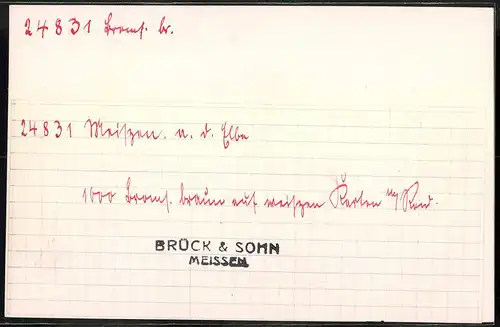 24831 Broms. br.
24831 Meiszen. a. d. Elbe
1000 Broms. braun auf weiszen Karten m/ Rand.
BRÜCK & SOHN
MEISSEN